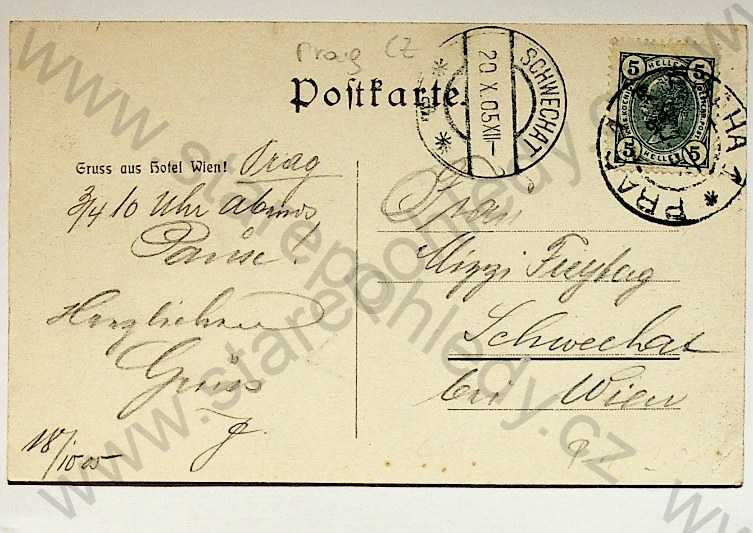 Prag CZ
Postkarte.
SCHWECHAT
20.X.05 XII-
5 HELLER 5
5 HELLER 5
PRAHA 1
Gruss aus Hotel Wien! Prag
3/4 10 Uhr Abends
Pause!
Herzlichen
Gruss
18/10 05
Frau
Mizzi Freytag
Schwechat
bei Wien
www.starepohledy.cz